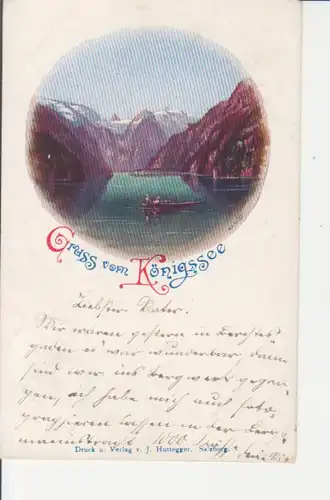 Gruss vom Königssee
Liebster Vater.
Wir waren gestern in Berchtes-
gaden es war wunderbar, dann
sind wir ins Bergwerk gegan-
gen, ich habe mich auch foto-
graphieren lassen in der Berg-
mannstracht 1000
Druck u. Verlag v. J. Huttegger, Salzburg.